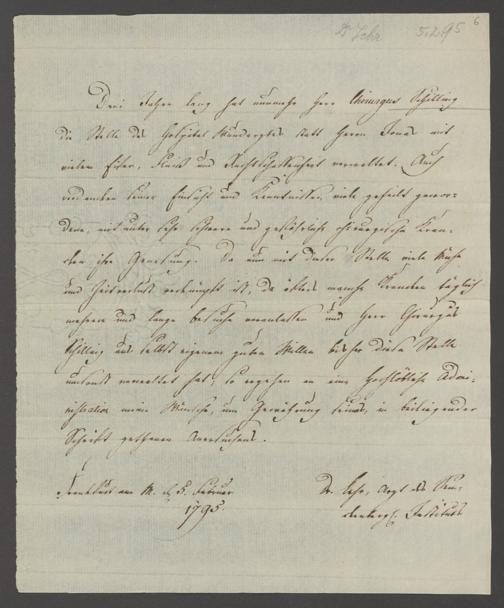 Dr Lehr 5.2.95 6
Drei Jahre lang hat nunmehr Herr Chirurgus Schilling
die Stelle des Hospital Wundarztes statt Herrn Jonas mit
vielem Eifer, Kunst und Rechtschaffenheit verwaltet. Auch
verdanken seiner Einsicht und Kenntnissen viele geheilt gewor-
dene, mitunter sehr schwere und gefährliche chirurgische Kran-
cke ihre Genesung. Da nun mit dieser Stelle viele Mühe
und Zeitverlust verknüpft ist, da öfters manche Kranken täglich
mehrere und lange besuche veranlassen und Herr Chirurgus
Schilling aus selbst eigenem guten Willen bisher diese Stelle
umsonst verwaltet hat; so ergehen an eine Hochlöbliche Admi-
nistration meine Wünsche, um Gewährung seines, in beiliegender
Schrift gethanen Ansuchens.
Frankfurt am M. d. 5. Februar
1795.
Dr. Lehr, Arzt des Sen-
ckenberg. Instituts